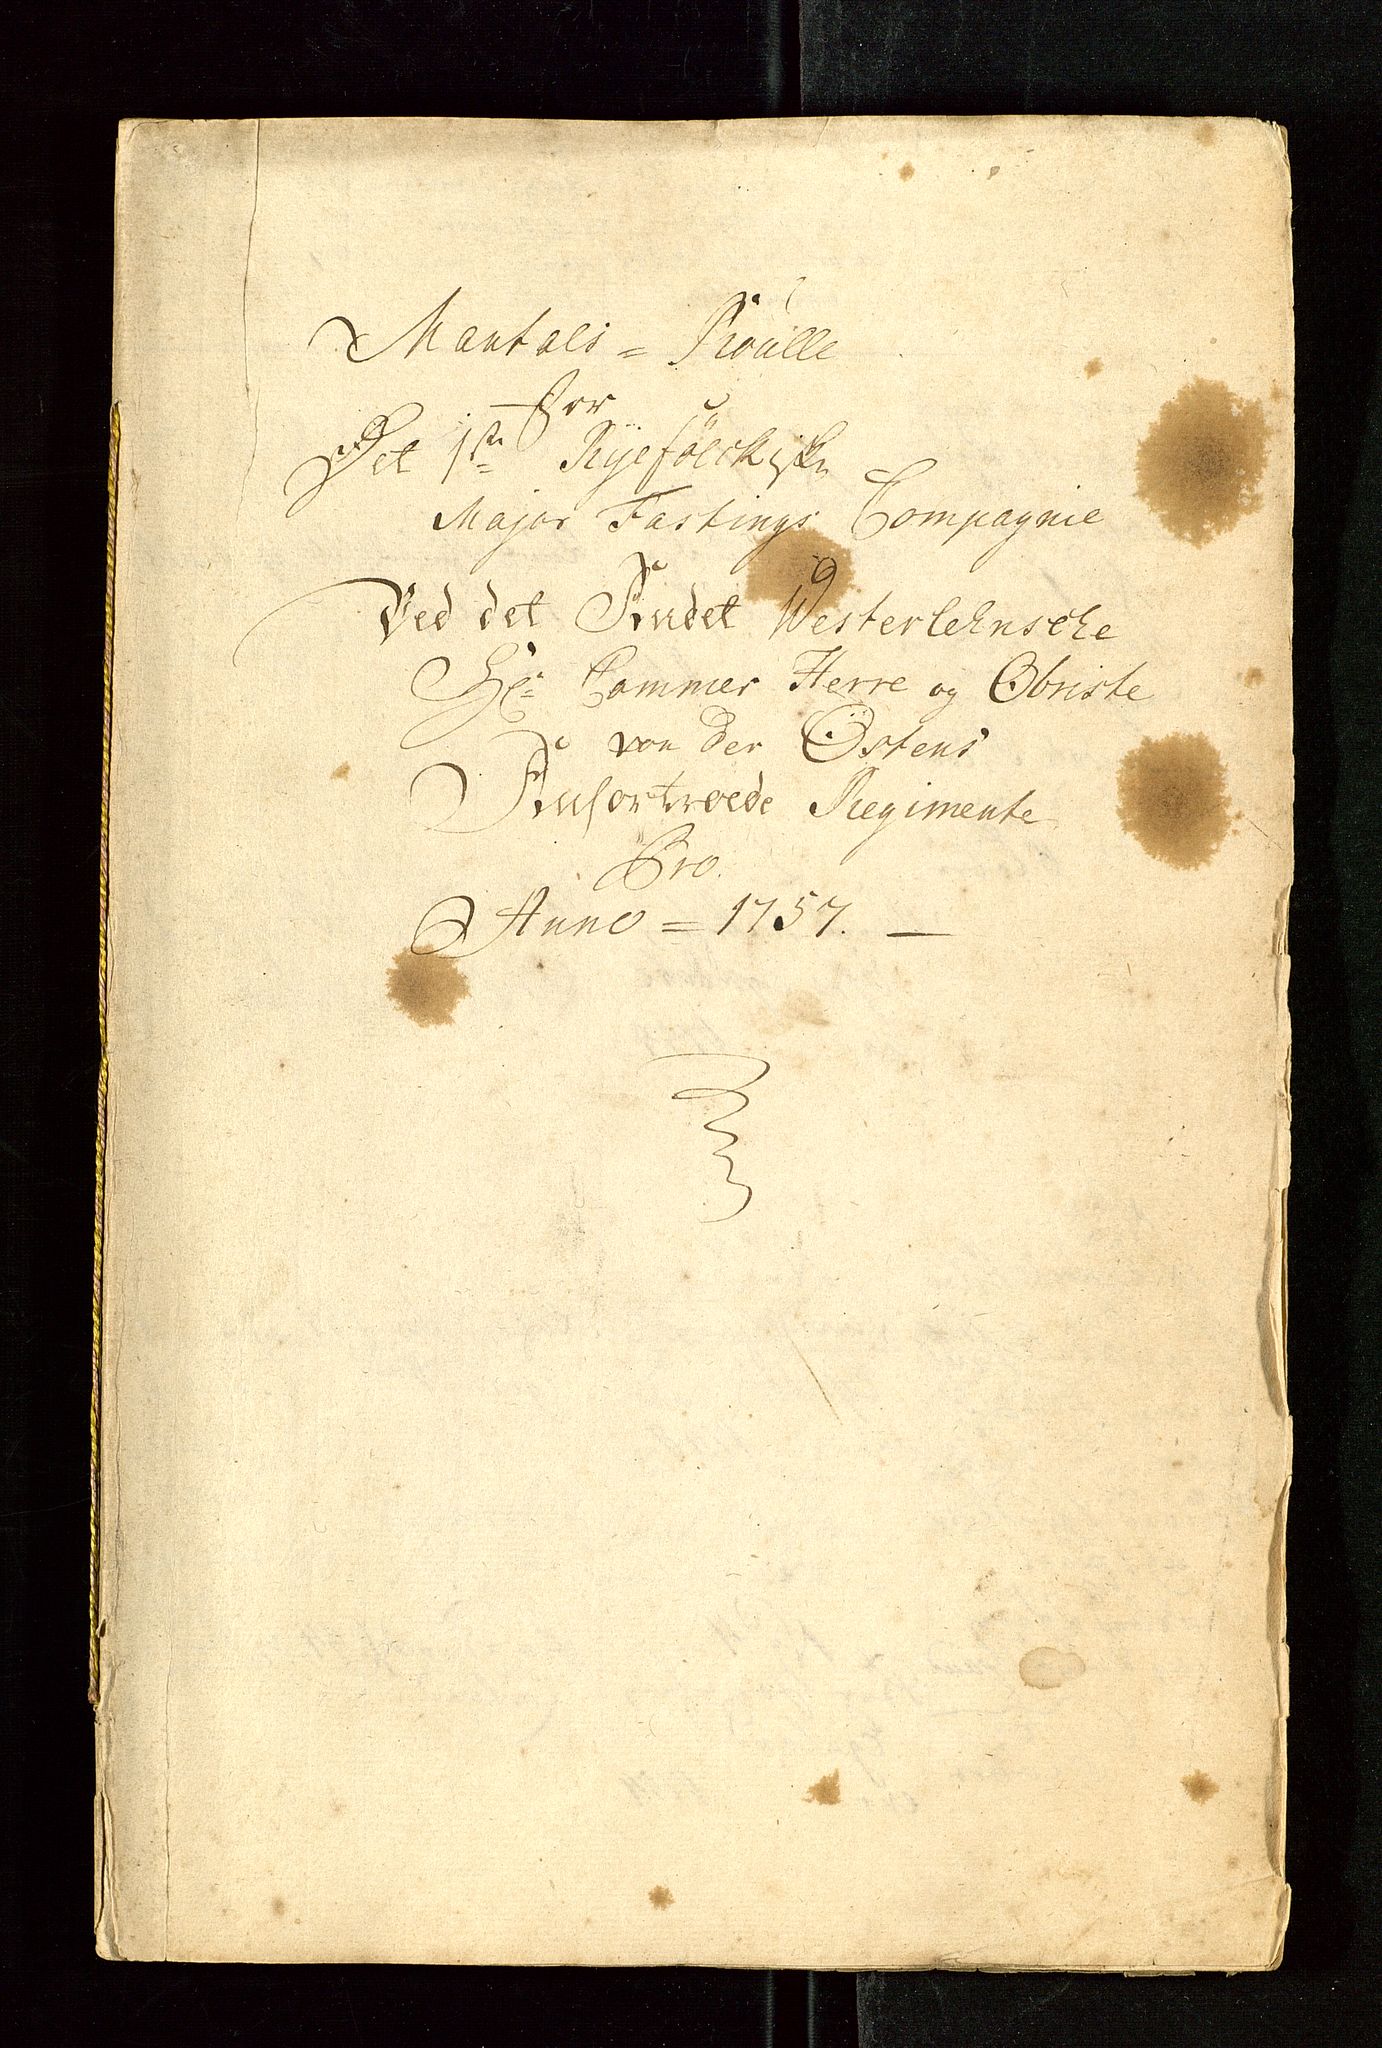 Mantals = Roulle
for
Det 1ste Ryefölckiske
Major Fastings Compagnie
Ved det Andet Westerlehnsche
Hr Cammer Herre og Obriste
von der Östens
Anfortroede Regimente
Pro.
Anno = 1757. —